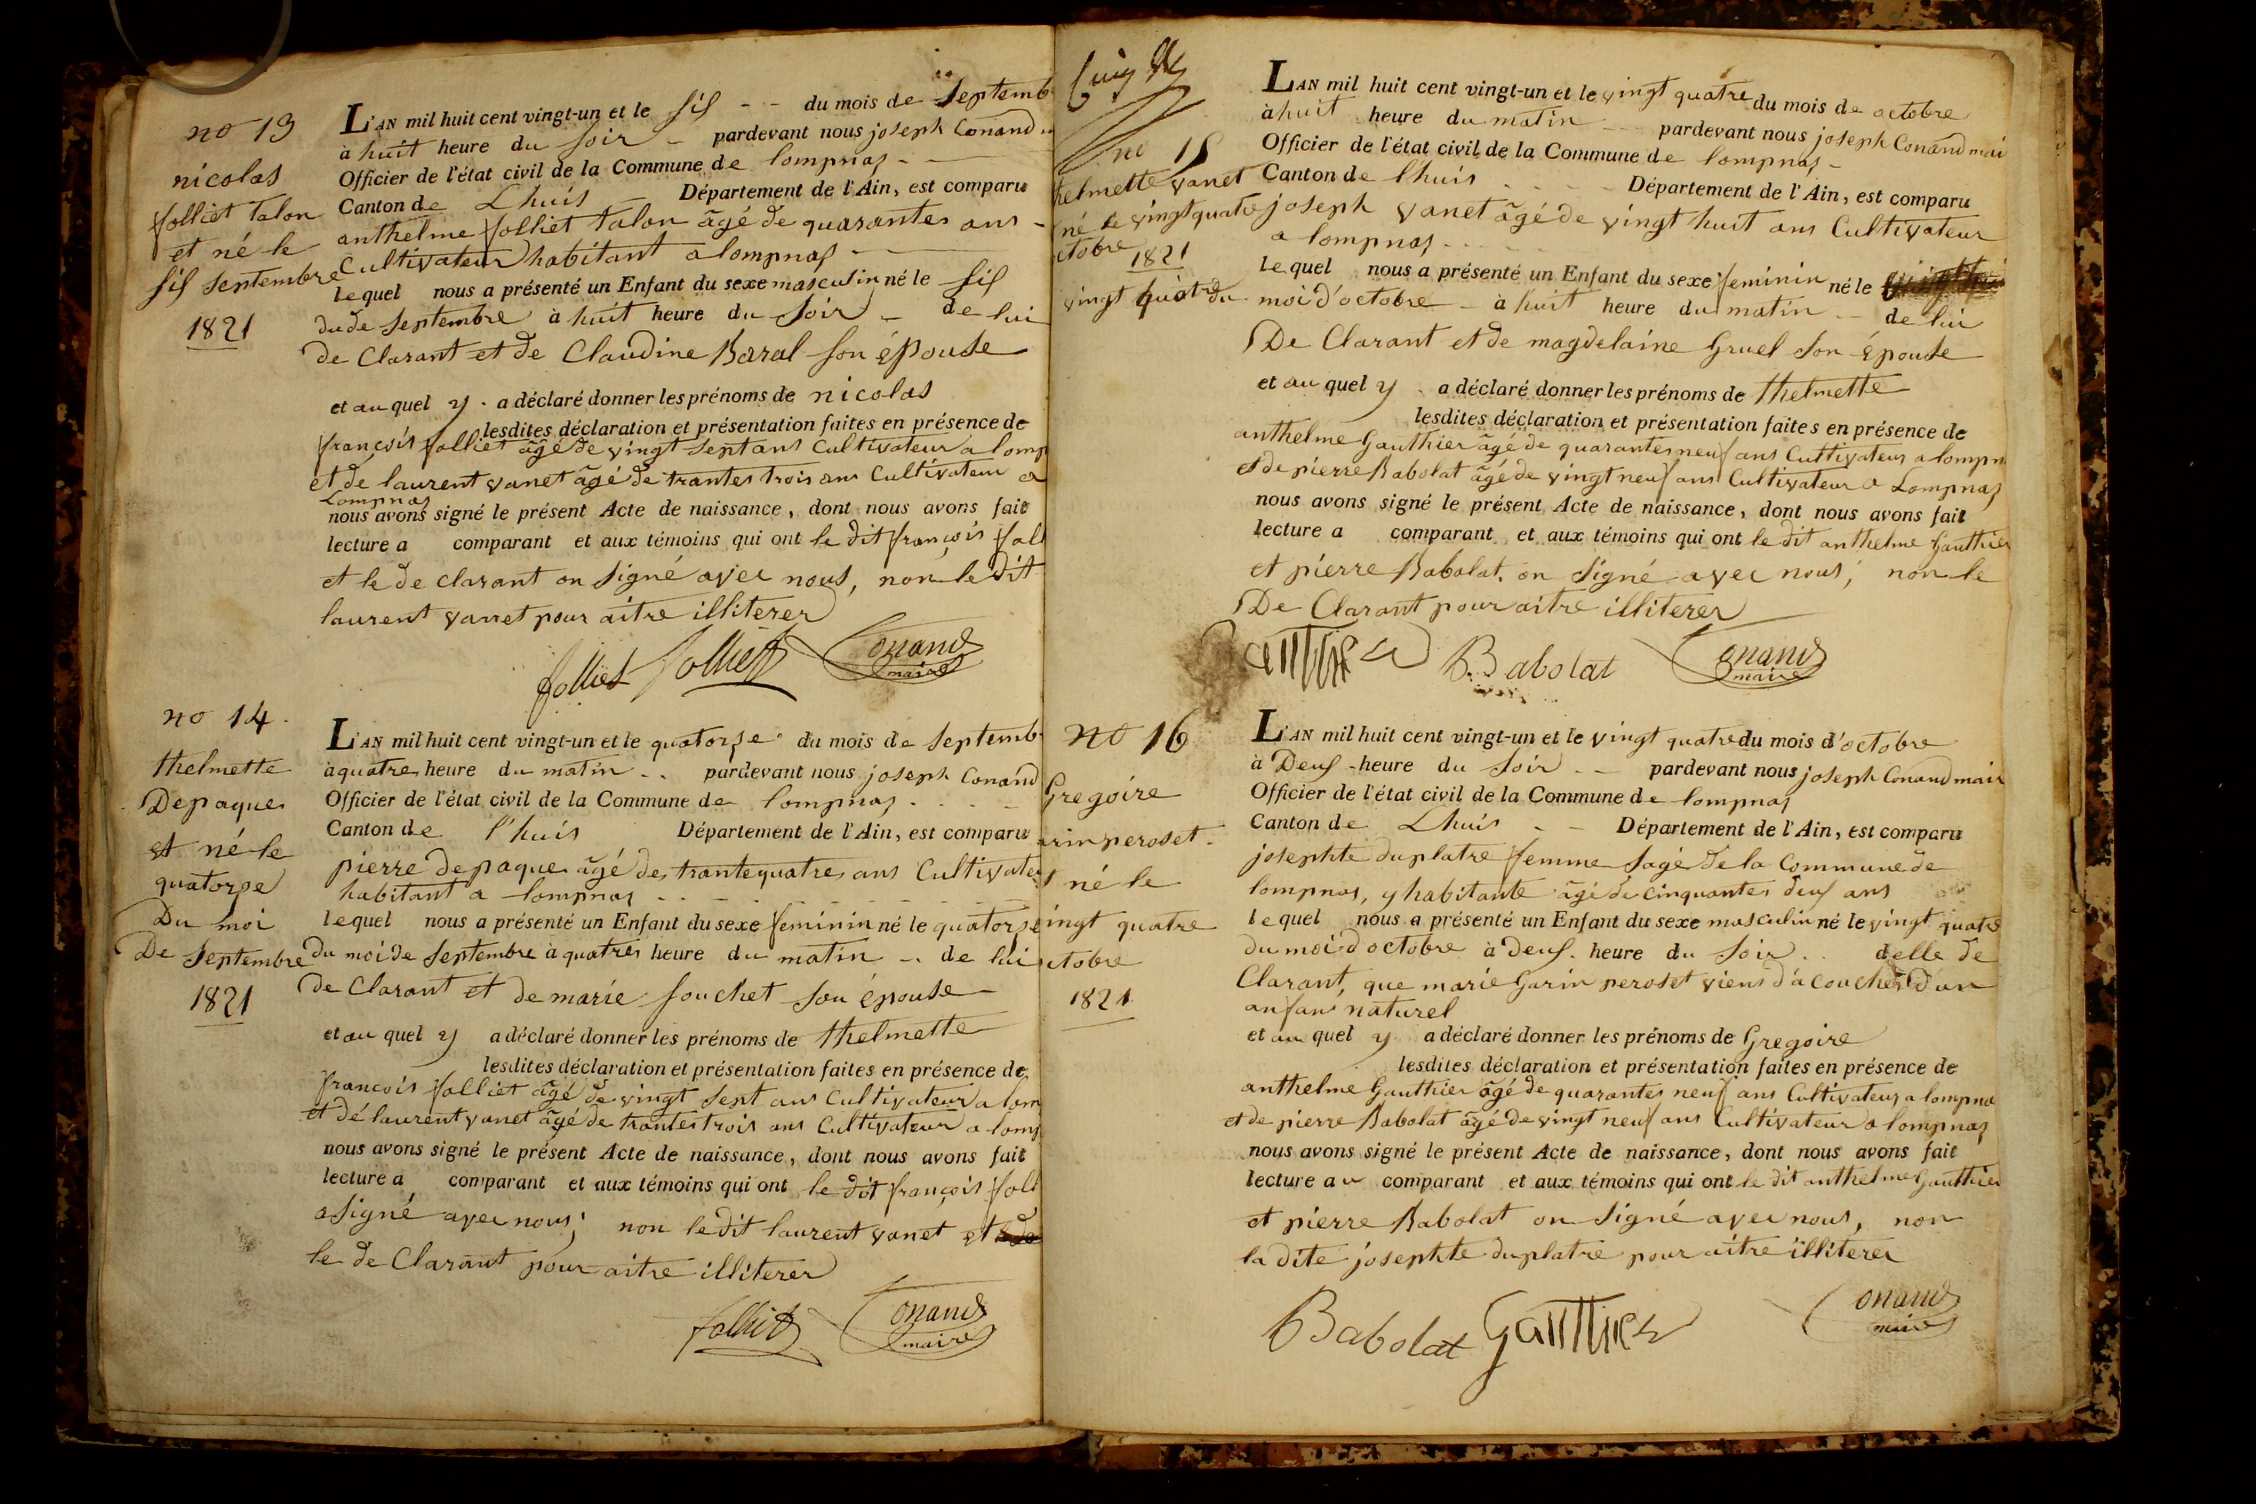 no 13
nicolas
folliet talon
et né le
sis septembre
1821
L'AN mil huit cent vingt-un et le sis du mois de septemb
à huit heure du soir pardevant nous joseph Conand
Officier de l'état civil de la Commune de lompnas
Canton de Lhuis Département de l'Ain, est comparu
anthelme folliet talon âgé de quarantes ans
Cultivateur habitant a lompnas
lequel nous a présenté un Enfant du sexe masculin né le sis
du de septembre à huit heure du soir de lui
de Clarant et de Claudine Baral son épouse
et au quel y a déclaré donner les prénoms de nicolas
lesdites déclaration et présentation faites en présence de
françois folliet âgé de vingt sept ans Cultivateur a lomp
et de laurent vanet âgé de trantes trois ans Cultivateur a
Lompnas
nous avons signé le présent Acte de naissance, dont nous avons fait
lecture a comparant et aux témoins qui ont le dit françois foll
et le de clarant on signé avec nous, non le dit
laurent vanet pour aitre illiterer
folliet folliet Conand
maire
no 14
thelmette
Depaque
et né le
quatorze
Du moi
De septembre
1821
L'AN mil huit cent vingt-un et le quatorze du mois de septemb
à quatres heure du matin pardevant nous joseph Conand
Officier de l'état civil de la Commune de lompnas
Canton de l'huis Département de l'Ain, est comparu
pierre depaque âgé des trante quatres ans Cultivateu
habitant a lompnas
lequel nous a présenté un Enfant du sexe feminin né le quatorze
du moi de septembre à quatres heure du matin de lui
de Clarant et de marie souchet son épouse
et au quel y a déclaré donner les prénoms de thelmette
lesdites déclaration et présentation faites en présence de
françois folliet âgé de vingt sept ans Cultivateur a lom
et dé laurent vanet âgé de trantes trois ans Cultivateur a lomp
nous avons signé le présent Acte de naissance, dont nous avons fait
lecture a comparant et aux témoins qui ont le dit françois foll
a signé avec nous; non le dit laurent vanet et
le de Clarant pour aitre illiterer
folliet Conand
maire
no 15
helmette vanet
né le vingt quatre
ctobre
1821
L'AN mil huit cent vingt-un et le vingt quatre du mois de octobre
à huit heure du matin pardevant nous joseph Conand mai
Officier de l'état civil de la Commune de lompnas
Canton de l'huis Département de l'Ain, est comparu
joseph vanet âgé de vingt huit ans Cultivateur
a lompnas
lequel nous a présenté un Enfant du sexe feminin né le
vingt quatre du moi d'octobre à huit heure du matin de lui
De Clarant et de magdelaine Gruel son épouse
et au quel y a déclaré donner les prénoms de thelmette
lesdites déclaration et présentation faites en présence de
anthelme Gauthier âgé de quarantes neuf ans Cultivateur a lompn
et de pierre Babolat âgé de vingt neuf ans Cultivateur a Lompnas
nous avons signé le présent Acte de naissance, dont nous avons fait
lecture a comparant et aux témoins qui ont le dit anthelme Gauthier
et pierre Babolat on signé avec nous; non le
De Clarant pour aitre illiterer
Gauthier Babolat Conand
maire
no 16
Gregoire
arin peroset
t né le
ingt quatre
ctobre
1821
L'AN mil huit cent vingt-un et le vingt quatre du mois d'octobre
à Deus heure du soir pardevant nous joseph Conand mair
Officier de l'état civil de la Commune de lompnas
Canton de Lhuis Département de l'Ain, est comparu
josephte duplatre femme sage de la Commune de
lompnas, y habitante âgé de cinquantes deus ans
lequel nous a présenté un Enfant du sexe masculin né le vingt quatre
du moi d'octobre à Deus heure du soir delle de
Clarant, que marie Garin peroset viens d'acoucher d'un
anfant naturel
et au quel y a déclaré donner les prénoms de Gregoire
lesdites déclaration et présentation faites en présence de
anthelme Gauthier âgé de quarantes neuf ans Cultivateur a lompna
et de pierre Babolat âgé de vingt neuf ans Cultivateur a lompnas
nous avons signé le présent Acte de naissance, dont nous avons fait
lecture au comparant et aux témoins qui ont le dit anthelme Gauthier
et pierre Babolat on signé avec nous, non
la dite josephte duplatre pour aitre illiterer
Babolat Gauthier Conand
maire